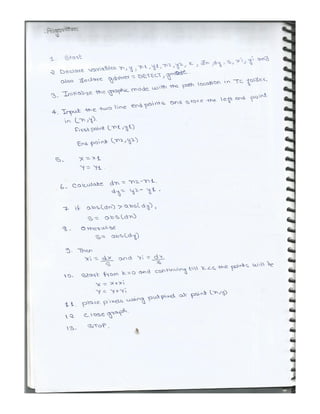 Algorithm:
1. Start
2. Declare variables x, y, x1, y1, x2, y2, k, dx, dy, s, xi, yi and
also declare gdriver = DETECT, gmode.
3. Initialise the graphic mode with the path location in TC folder.
4. Input the two line end points and store the left end point
in (x,y).
First point (x1,y1)
End point (x2,y2)
5. X = x1
Y = y1.
6. Calculate dx = x2-x1
dy = y2- y1.
7 if abs(dx) > abs(dy),
S= abs(dx)
8. Otherwise
S= abs(dy)
9. Then
xi = dx/S and Yi = dx/S
10. Start from k=0 and continuing till k<s the points will be
x = x+xi
Y = Y+Yi
11 place pixels using putpixel at point (x,y)
12 Close graph.
13. STOP.